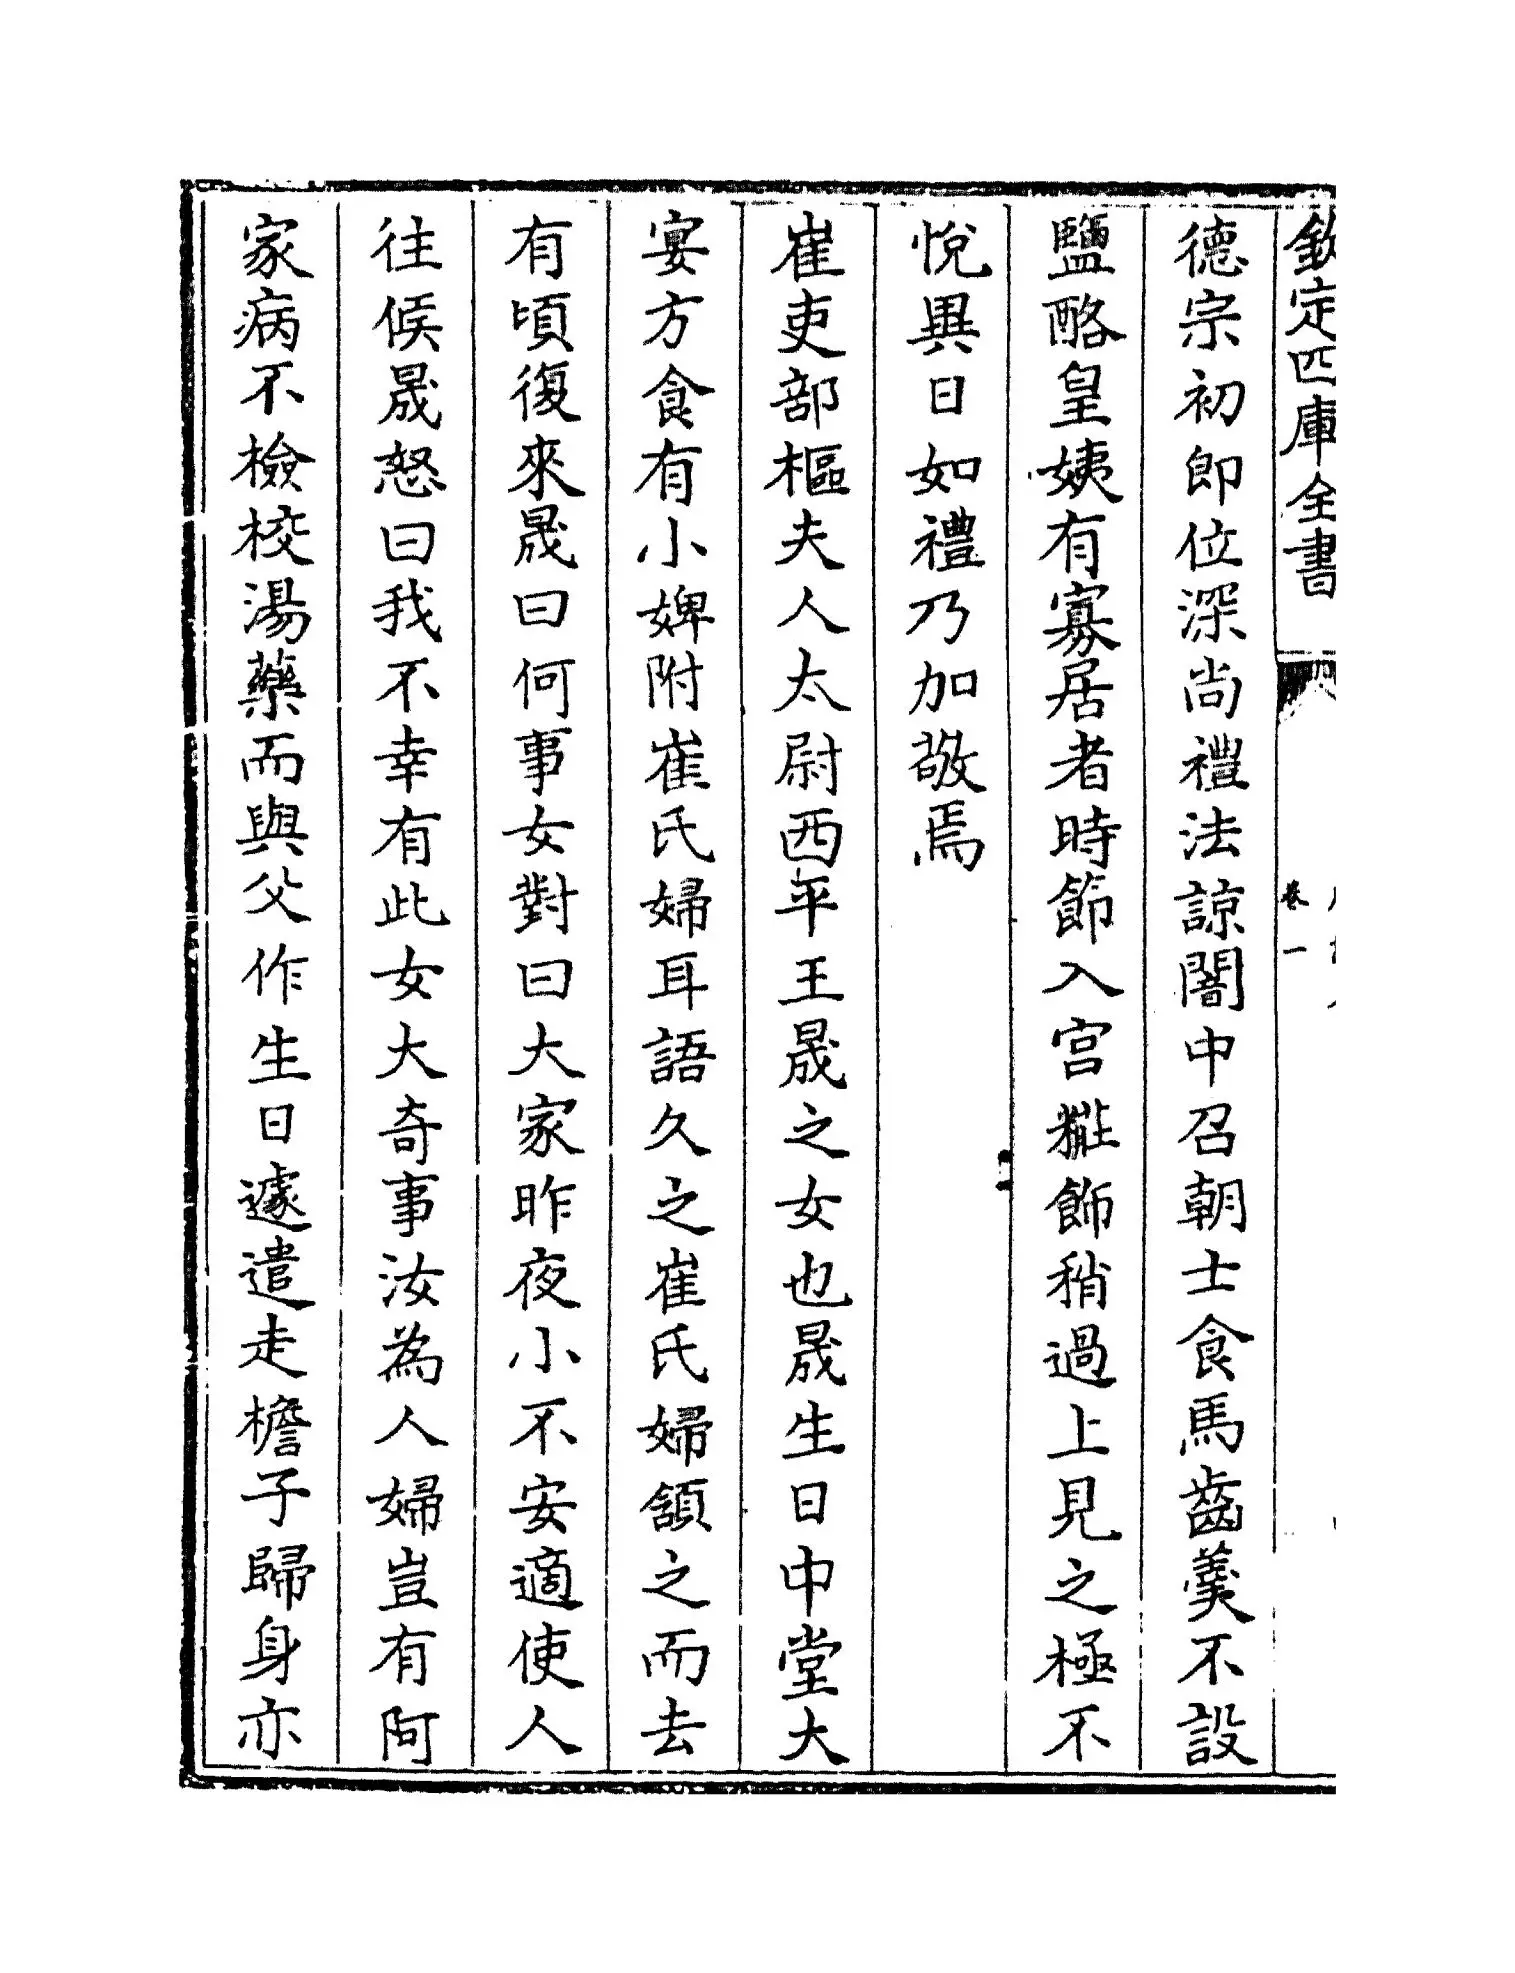 欽定四庫全書
卷一
德宗初即位深尚禮法諒闇中召朝士食馬齒羹不設
鹽酪皇姨有寡居者時節入宮糚飾稍過上見之極不
悅異日如禮乃加敬焉
崔吏部樞夫人太尉西平王晟之女也晟生日中堂大
宴方食有小婢附崔氏婦耳語久之崔氏婦頷之而去
有頃復來晟曰何事女對曰大家昨夜小不安適使人
往候晟怒曰我不幸有此女大奇事汝為人婦豈有阿
家病不檢校湯藥而與父作生日遽遣走檐子歸身亦